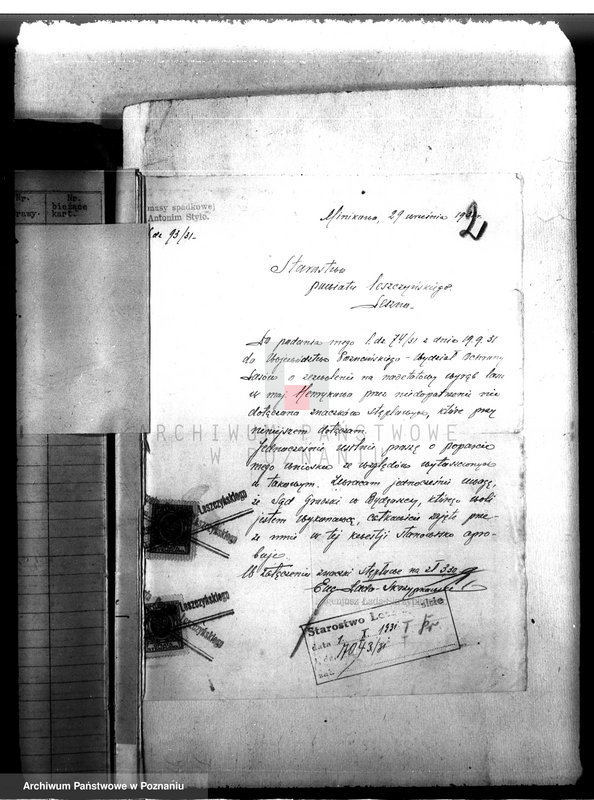 Nr.
Nr.
bieżące
kart.
masy spadkowej
Antonim Stylo.
L.dz 93/31
Minikowo, 29 września 1931r.
2
Starostwo
powiatu Leszczyńskiego
Leszno
Do podania mego l.dz. 74/31 z dnia 19.9.31
do Województwa Poznańskiego - Wydział Ochrony
Lasów o zezwolenie na nadetatowy wyrąb lasu
w maj. Henrykowo przez niedopatrzenie nie
dołączono znaczków stęplowych, które przy
niniejszem dołączam.
Jednocześnie usilnie proszę o poparcie
mego wniosku ze względów wyłuszczonych
w takowym. Zwracam jednocześnie uwagę,
że Sąd Grodzki w Bydgoszczy, którego woli
jestem wykonawcą, całkowicie zajęte prze-
ze mnie w tej kwestji stanowisko apro-
buje.
W załączeniu znaczki stęplowe na zł 3.30
Eug Łada-
Leszczyńskiego
Leszczyńskiego
Starostwo
data 1 X. 1931
l.dz. 7043/31
zał.
ARCHIWUM PAŃSTWOWE
W POZNANIU
Archiwum Państwowe w Poznaniu